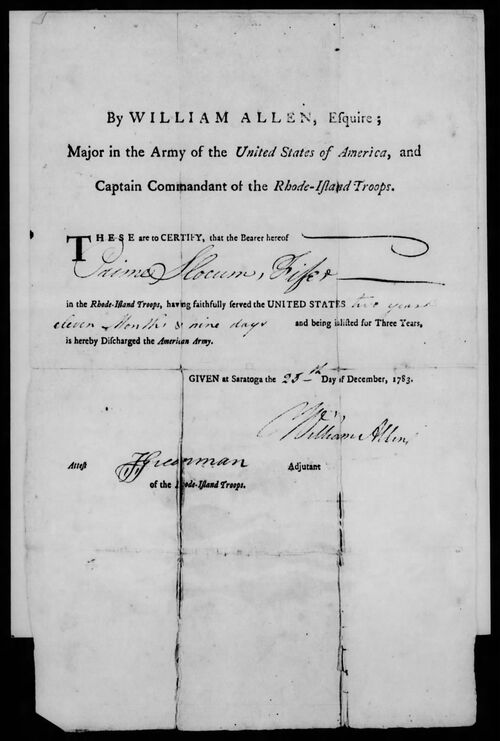 By WILLIAM ALLEN, Esquire;
Major in the Army of the United States of America, and
Captain Commandant of the Rhode-Island Troops.
THESE are to CERTIFY, that the Bearer hereof
Prime Slocum, Fifer
in the Rhode-Island Troops, having faithfully served the UNITED STATES two years
eleven Months & nine days and being inlisted for Three Years,
is hereby Discharged the American Army.
GIVEN at Saratoga the 25th Day of December, 1783.
William Allen
Attest JGreenman Adjutant
of the Rhode-Island Troops.